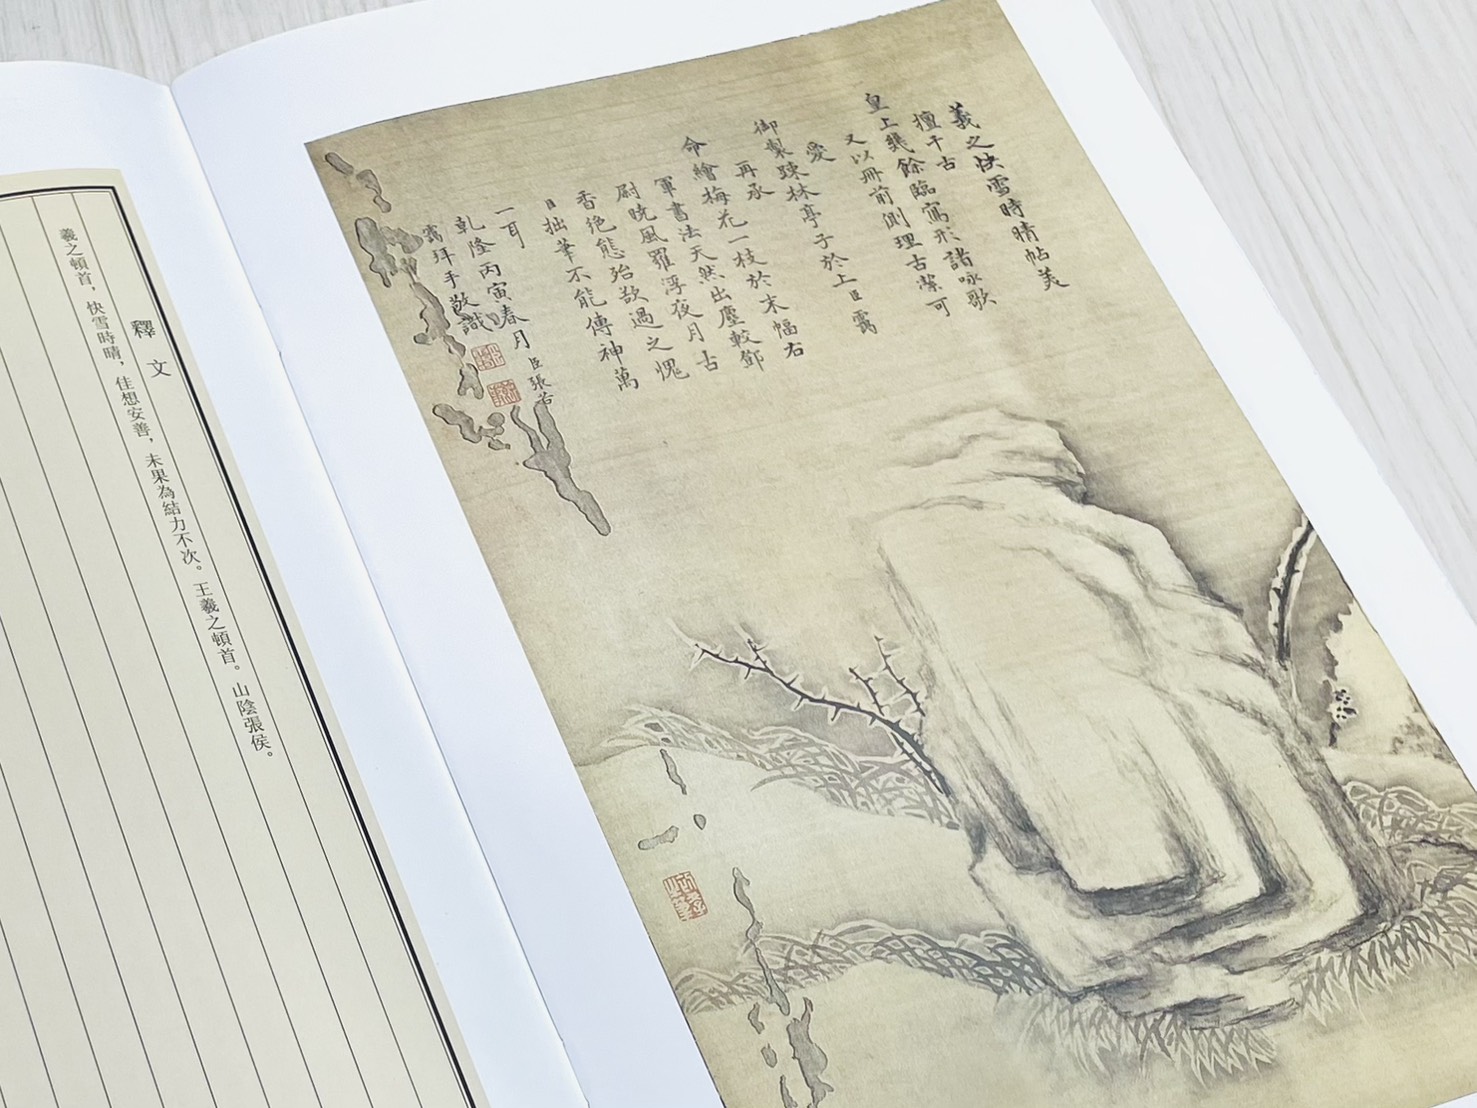 羲之快雪時晴帖美
擅千古
皇上幾餘臨寫形諸咏歌
又以冊前側理古潔可
愛
御製踈林亭子於上臣靄
再承
命繪梅花一枝於末幅右
軍書法天然出塵較鄧
尉晓風羅浮夜月古
香绝態殆欲過之愧
臣拙筆不能傳神萬
一耳
乾隆丙寅春月臣張若
靄拜手敬識
釋文
羲之頓首，快雪時晴，佳想安善，未果為結力不次。王羲之頓首。山陰張侯。